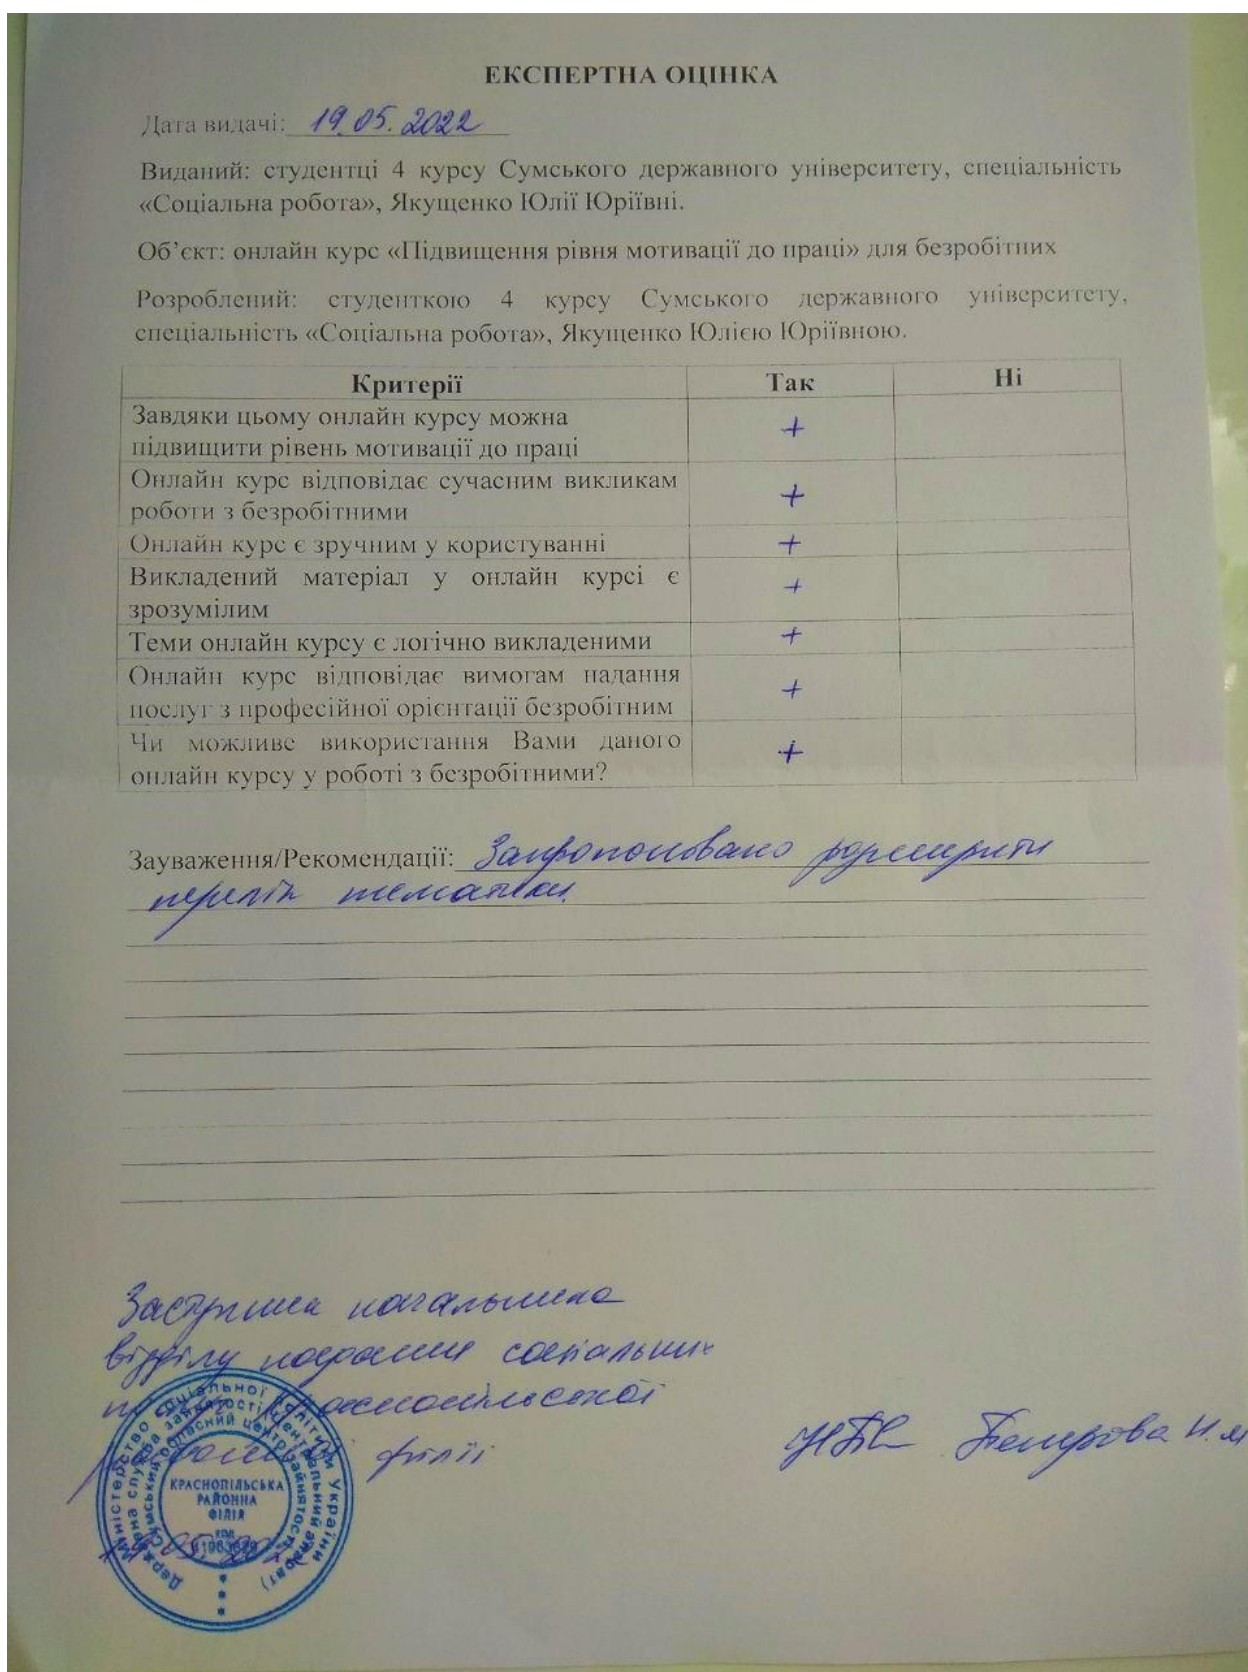 ЕКСПЕРТНА ОЦІНКА
Дата видачі: 19.05.2022
Виданий: студентці 4 курсу Сумського державного університету, спеціальність
«Соціальна робота», Якущенко Юлії Юріївні.
Об’єкт: онлайн курс «Підвищення рівня мотивації до праці» для безробітних
Розроблений: студенткою 4 курсу Сумського державного університету,
спеціальність «Соціальна робота», Якущенко Юлією Юріївною.
Критерії Так Ні
Завдяки цьому онлайн курсу можна
підвищити рівень мотивації до праці +
Онлайн курс відповідає сучасним викликам
роботи з безробітними +
Онлайн курс є зручним у користуванні +
Викладений матеріал у онлайн курсі є
зрозумілим +
Теми онлайн курсу є логічно викладеними +
Онлайн курс відповідає вимогам надання
послуг з професійної орієнтації безробітним +
Чи можливе використання Вами даного
онлайн курсу у роботі з безробітними? +
Зауваження/Рекомендації: Запропоновано розширити
перелік тематики.
Заступник начальника
відділу надання соціальних
Краснопільської
районної філії
Міністерство соціальної політики України
Державна служба зайнятості (Центральний апарат)
Сумський обласний центр зайнятості
КРАСНОПІЛЬСЬКА
РАЙОННА
ФІЛІЯ
КОД
19.05.2022